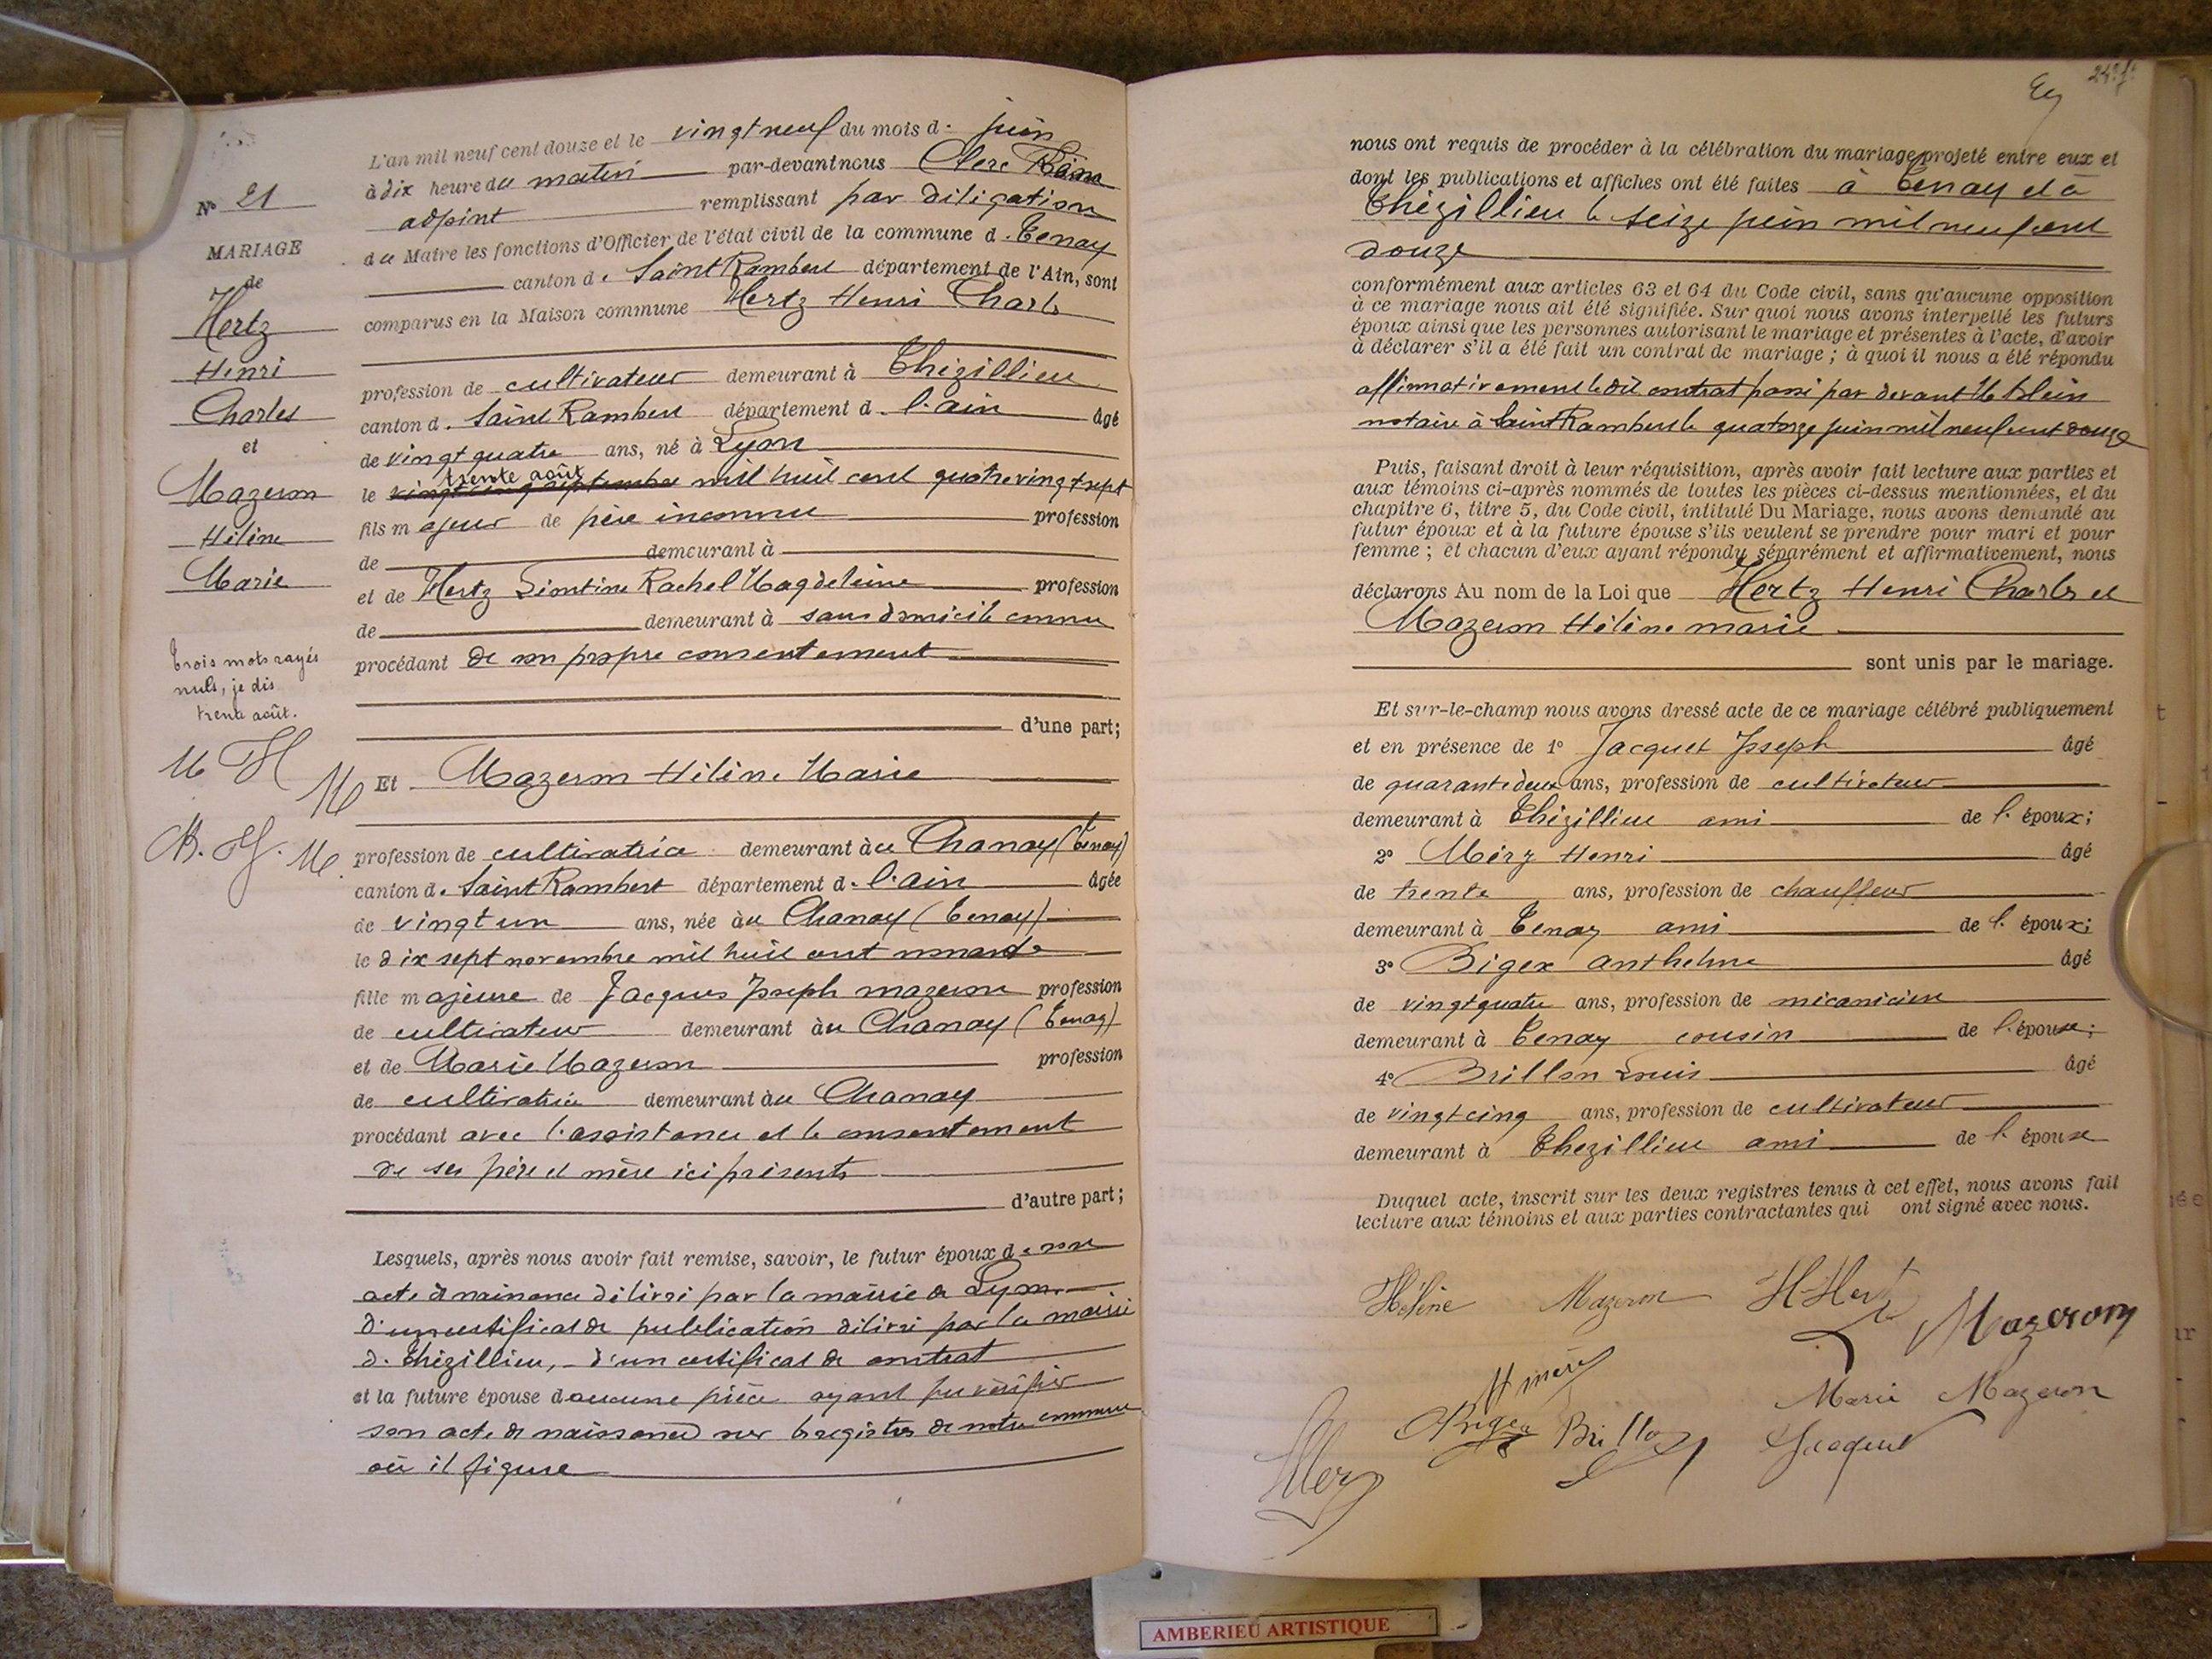 N° 21
MARIAGE
de
Hertz
Henri
Charles
et
Mazeron
Hélène
Marie
Trois mots rayés
nuls, je dis
trente août.
M H
M
M.
L'an mil neuf cent douze et le vingt neuf du mois de juin
à dix heure du matin par-devant nous Clerc
adjoint remplissant par déligation
du Maire les fonctions d'Officier de l'état civil de la commune d. Tenay
canton de Saint Rambert département de l'Ain, sont
comparus en la Maison commune Hertz Henri Charles
profession de cultivateur demeurant à Thézillieu
canton d. Saint Rambert département d. l'ain âgé
de vingt quatre ans, né à Lyon
trente août
le vingt cinq septembre mil huit cent quatre vingt sept
fils majeur de père inconnu profession
de demeurant à
et de Hertz Léontine Rachel Magdeleine profession
de demeurant à sans domicile connu
procédant de son propre consentement
d'une part;
Et Mazeron Hélène Marie
profession de cultivatrice demeurant àu Chanay (Tenay)
canton de Saint Rambert département d. l'ain âgée
de vingt un ans, née àu Chanay (Tenay)
le dix sept novembre mil huit cent nonante
fille majeure de Jacques Joseph mazeron profession
de cultivateur demeurant àu Chanay (Tenay)
et de Marie Mazeron profession
de cultivatrice demeurant àu Chanay
procédant avec l'assistance et le consentement
de ses père et mère ici présents
d'autre part;
Lesquels, après nous avoir fait remise, savoir, le futur époux de son
acte de naissance délivré par la mairie de Lyon
d'un certificat de publication délivré par la mairie
d. Thézillieu, d'un certificat de contrat
et la future épouse d aucune pièce ayant pu vérifier
son acte de naissance sur les registres de notre commune
où il figure
nous ont requis de procéder à la célébration du mariage projeté entre eux et
dont les publications et affiches ont été faites à Tenay et à
Thézillieu le seize juin mil neuf cent
douze
conformément aux articles 63 et 64 du Code civil, sans qu'aucune opposition
à ce mariage nous ait été signifiée. Sur quoi nous avons interpellé les futurs
époux ainsi que les personnes autorisant le mariage et présentes à l'acte, d'avoir
à déclarer s'il a été fait un contrat de mariage; à quoi il nous a été répondu
affirmativement ledit contrat passé par devant Me Blein
notaire à Saint Rambert le quatorze juin mil neuf cent douze
Puis, faisant droit à leur réquisition, après avoir fait lecture aux parties et
aux témoins ci-après nommés de toutes les pièces ci-dessus mentionnées, et du
chapitre 6, titre 5, du Code civil, intitulé Du Mariage, nous avons demandé au
futur époux et à la future épouse s'ils veulent se prendre pour mari et pour
femme; et chacun d'eux ayant répondu séparément et affirmativement, nous
déclarons Au nom de la Loi que Hertz Henri Charles et
Mazeron Hélène marie
sont unis par le mariage.
Et sur-le-champ nous avons dressé acte de ce mariage célébré publiquement
et en présence de 1° Jacquet Joseph âgé
de quarante deux ans, profession de cultivateur
demeurant à Thézillieu ami de l. époux;
2° Mérz Henri âgé
de trente ans, profession de chauffeur
demeurant à Tenay ami de l. époux;
3° Bigex anthelme âgé
de vingt quatre ans, profession de mécanicien
demeurant à Tenay cousin de l. épouse;
4° Brillon Louis âgé
de vingt cinq ans, profession de cultivateur
demeurant à Thezillieu ami de l. épouse
Duquel acte, inscrit sur les deux registres tenus à cet effet, nous avons fait
lecture aux témoins et aux parties contractantes qui ont signé avec nous.
Hélène Mazeron H Hertz
Mazeron
Marie Mazeron
Bigex Brillon Jacquet
AMBERIEU ARTISTIQUE